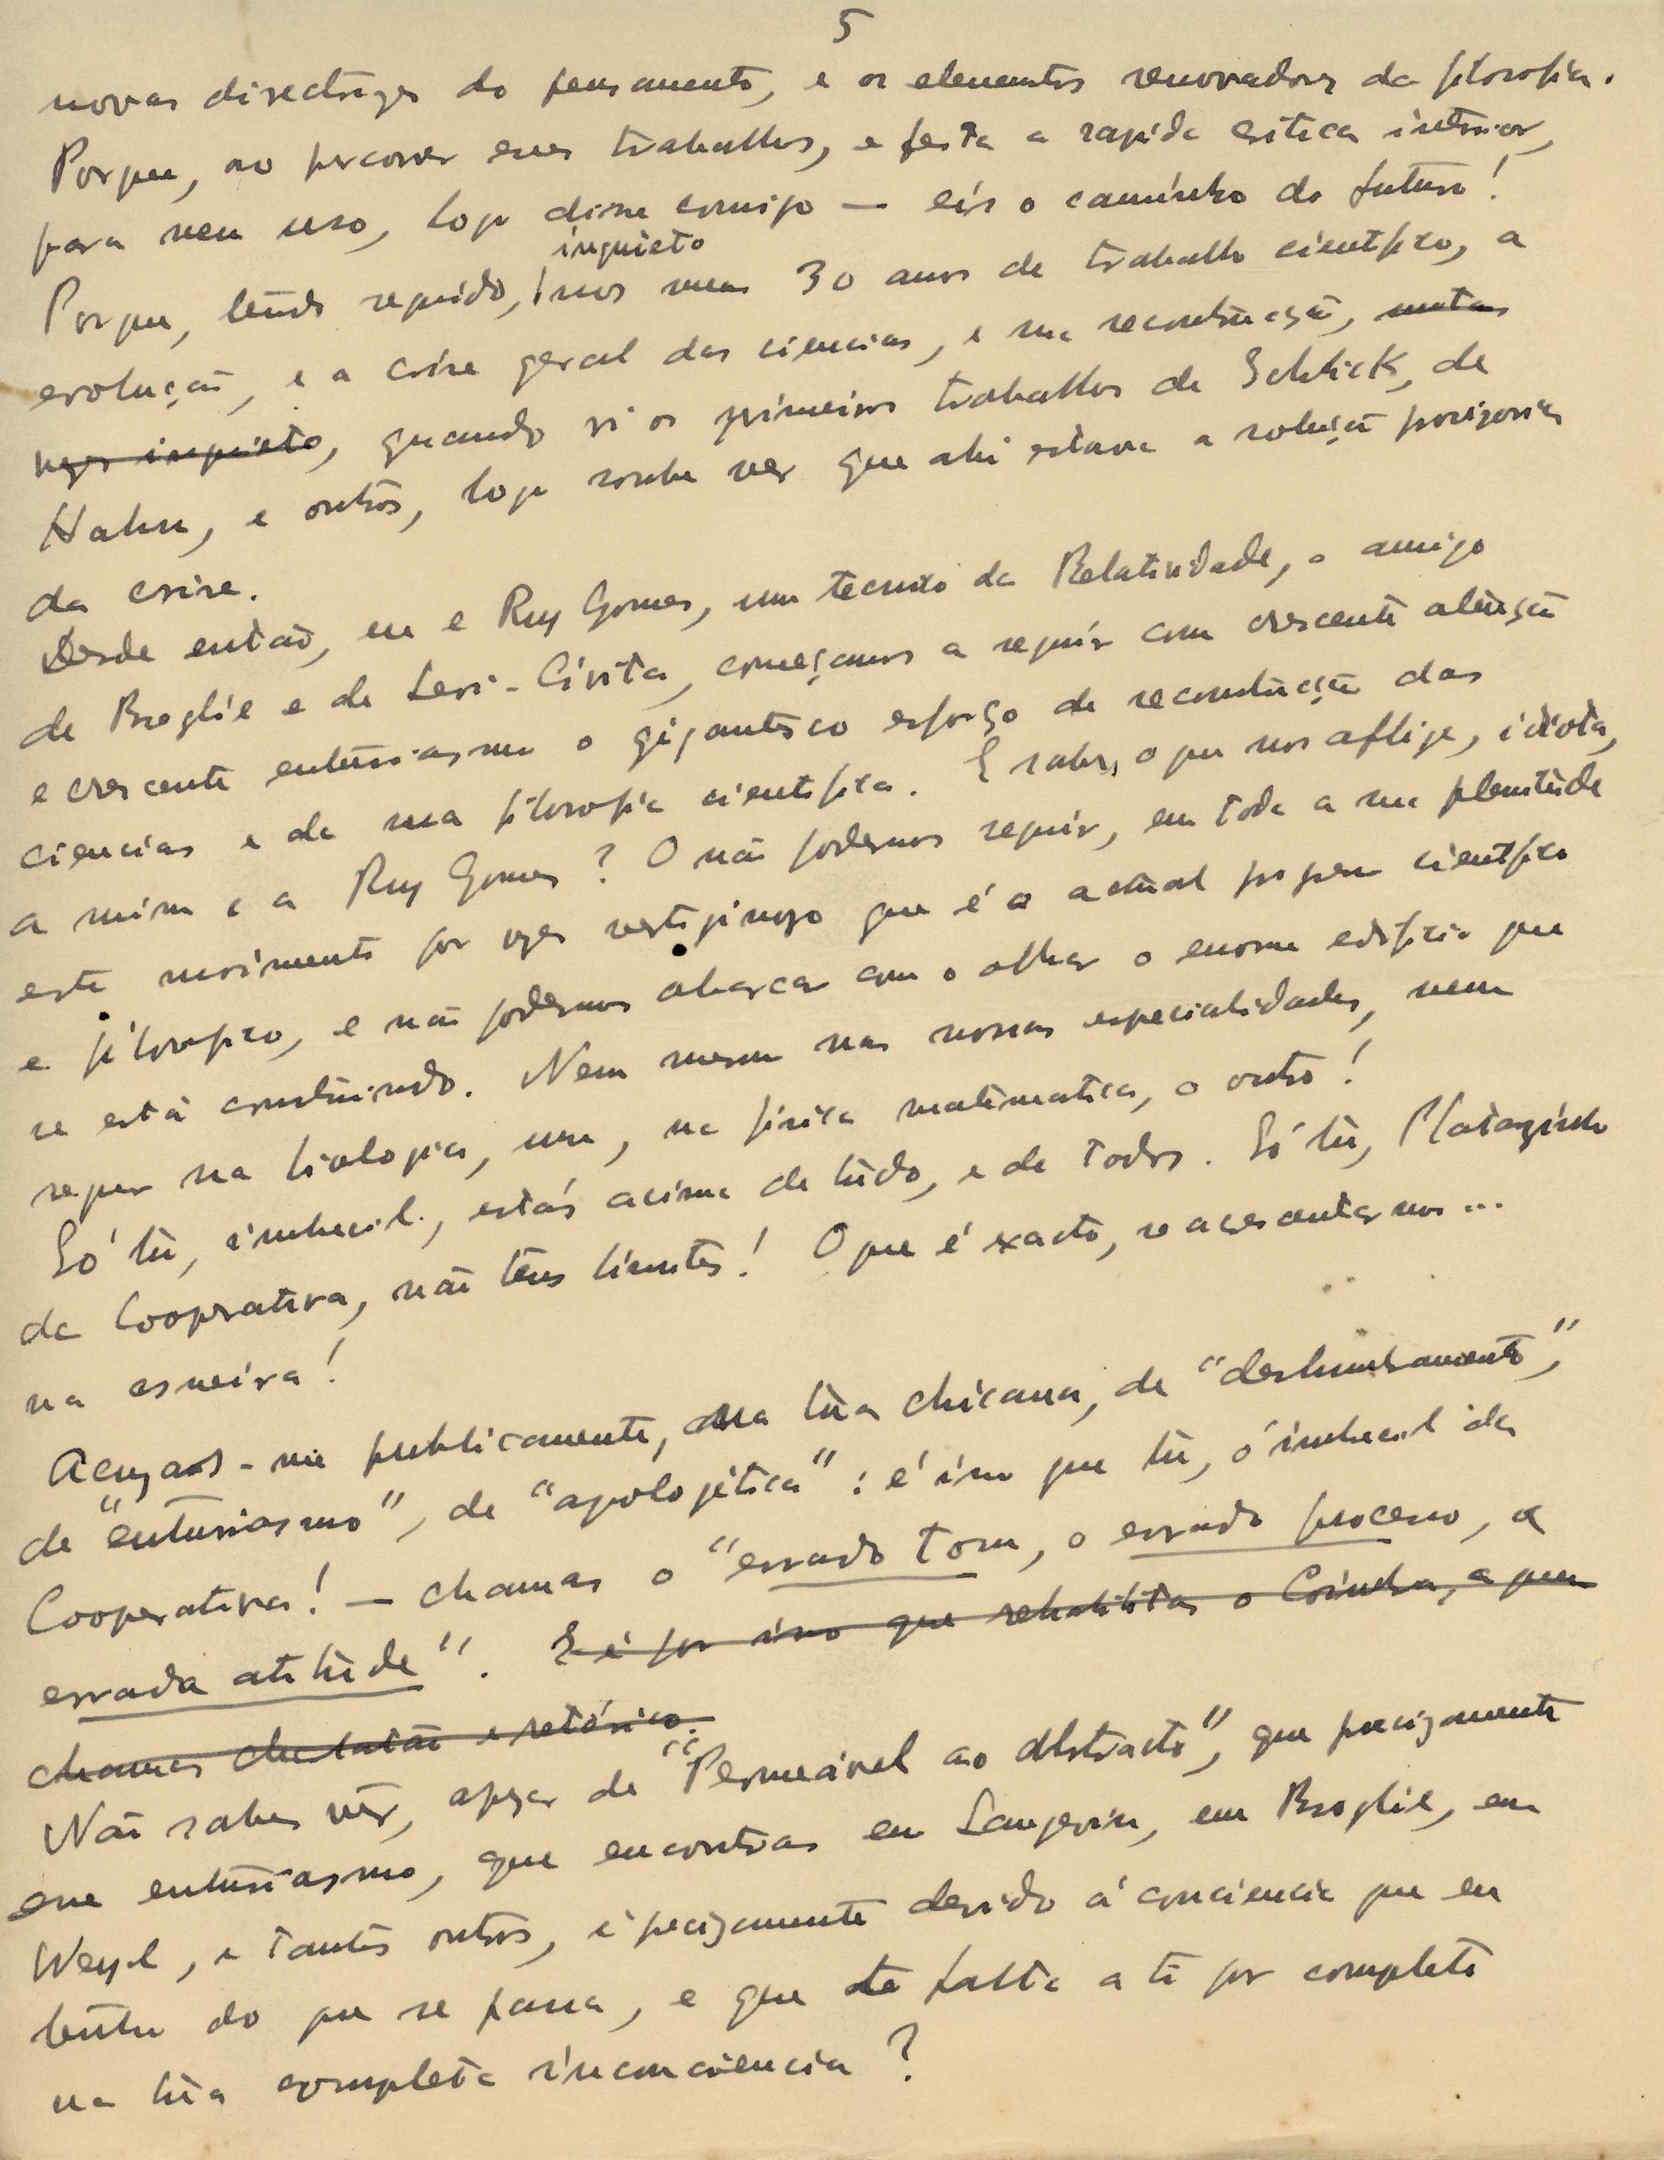 5
novas directrizes do pensamento, e os elementos renovadores da filosofia.
Porque, ao percorrer esses trabalhos, e feita a rapida critica interior,
para meu uso, logo disse comigo — eis o caminho do futuro!
inquieto
Porque, tendo seguido, nos meus 30 anos de trabalho cientifico, a
evolução, e a crise geral das ciencias, e sua reconstrução, muitas
vezes inquieto, quando vi os primeiros trabalhos de Schlick, de
Hahn, e outros, logo soube ver que ahi estava a solução
da crise.
Desde então, eu e Ruy Gomes, um tecnico da Relatividade, o amigo
de Broglie e de Levi-Civita, começamos a seguir com crescente atenção
e crescente entusiasmo o gigantesco esforço de reconstrução das
ciencias e de uma filosofia cientifica. E sabes o que nos aflige, idiota,
a mim e a Ruy Gomes? O não podermos seguir, em toda a sua plenitude
este movimento por vezes vertiginozo que é o actual progresso cientifico
e filosofico, e não podermos abarcar com o olhar o enorme edificio que
se está construindo. Nem mesmo nas nossas especialidades, nem
sequer na biologia, um, na fisica matematica, o outro!
Só tu, imbecil, estás acima de tudo, e de todos. Só tu, Platãozinho
da Cooperativa, não tens limites! O que é exacto, se acrescentarmos...
na asneira!
Acuzas-me publicamente, na tua chicana, de "deslumbramento",
de "entusiasmo", de "apologética": é isso que tu, ó imbecil da
Cooperativa! — chamas o "errado tom, o errado processo, a
errada atitude". E é por isso que rehabilitas o Coimbra, a quem
chamas charlatão e retórico.
Não sabes vêr, apezar de "Permeável ao abstracto", que precizamente
esse entusiasmo, que encontras em Langevin, em Broglie, em
Weyl, e tantos outros, é precizamente devido á conciencia que eu
tenho do que se passa, e que te falta a ti por completo
na tua completa inconciencia?